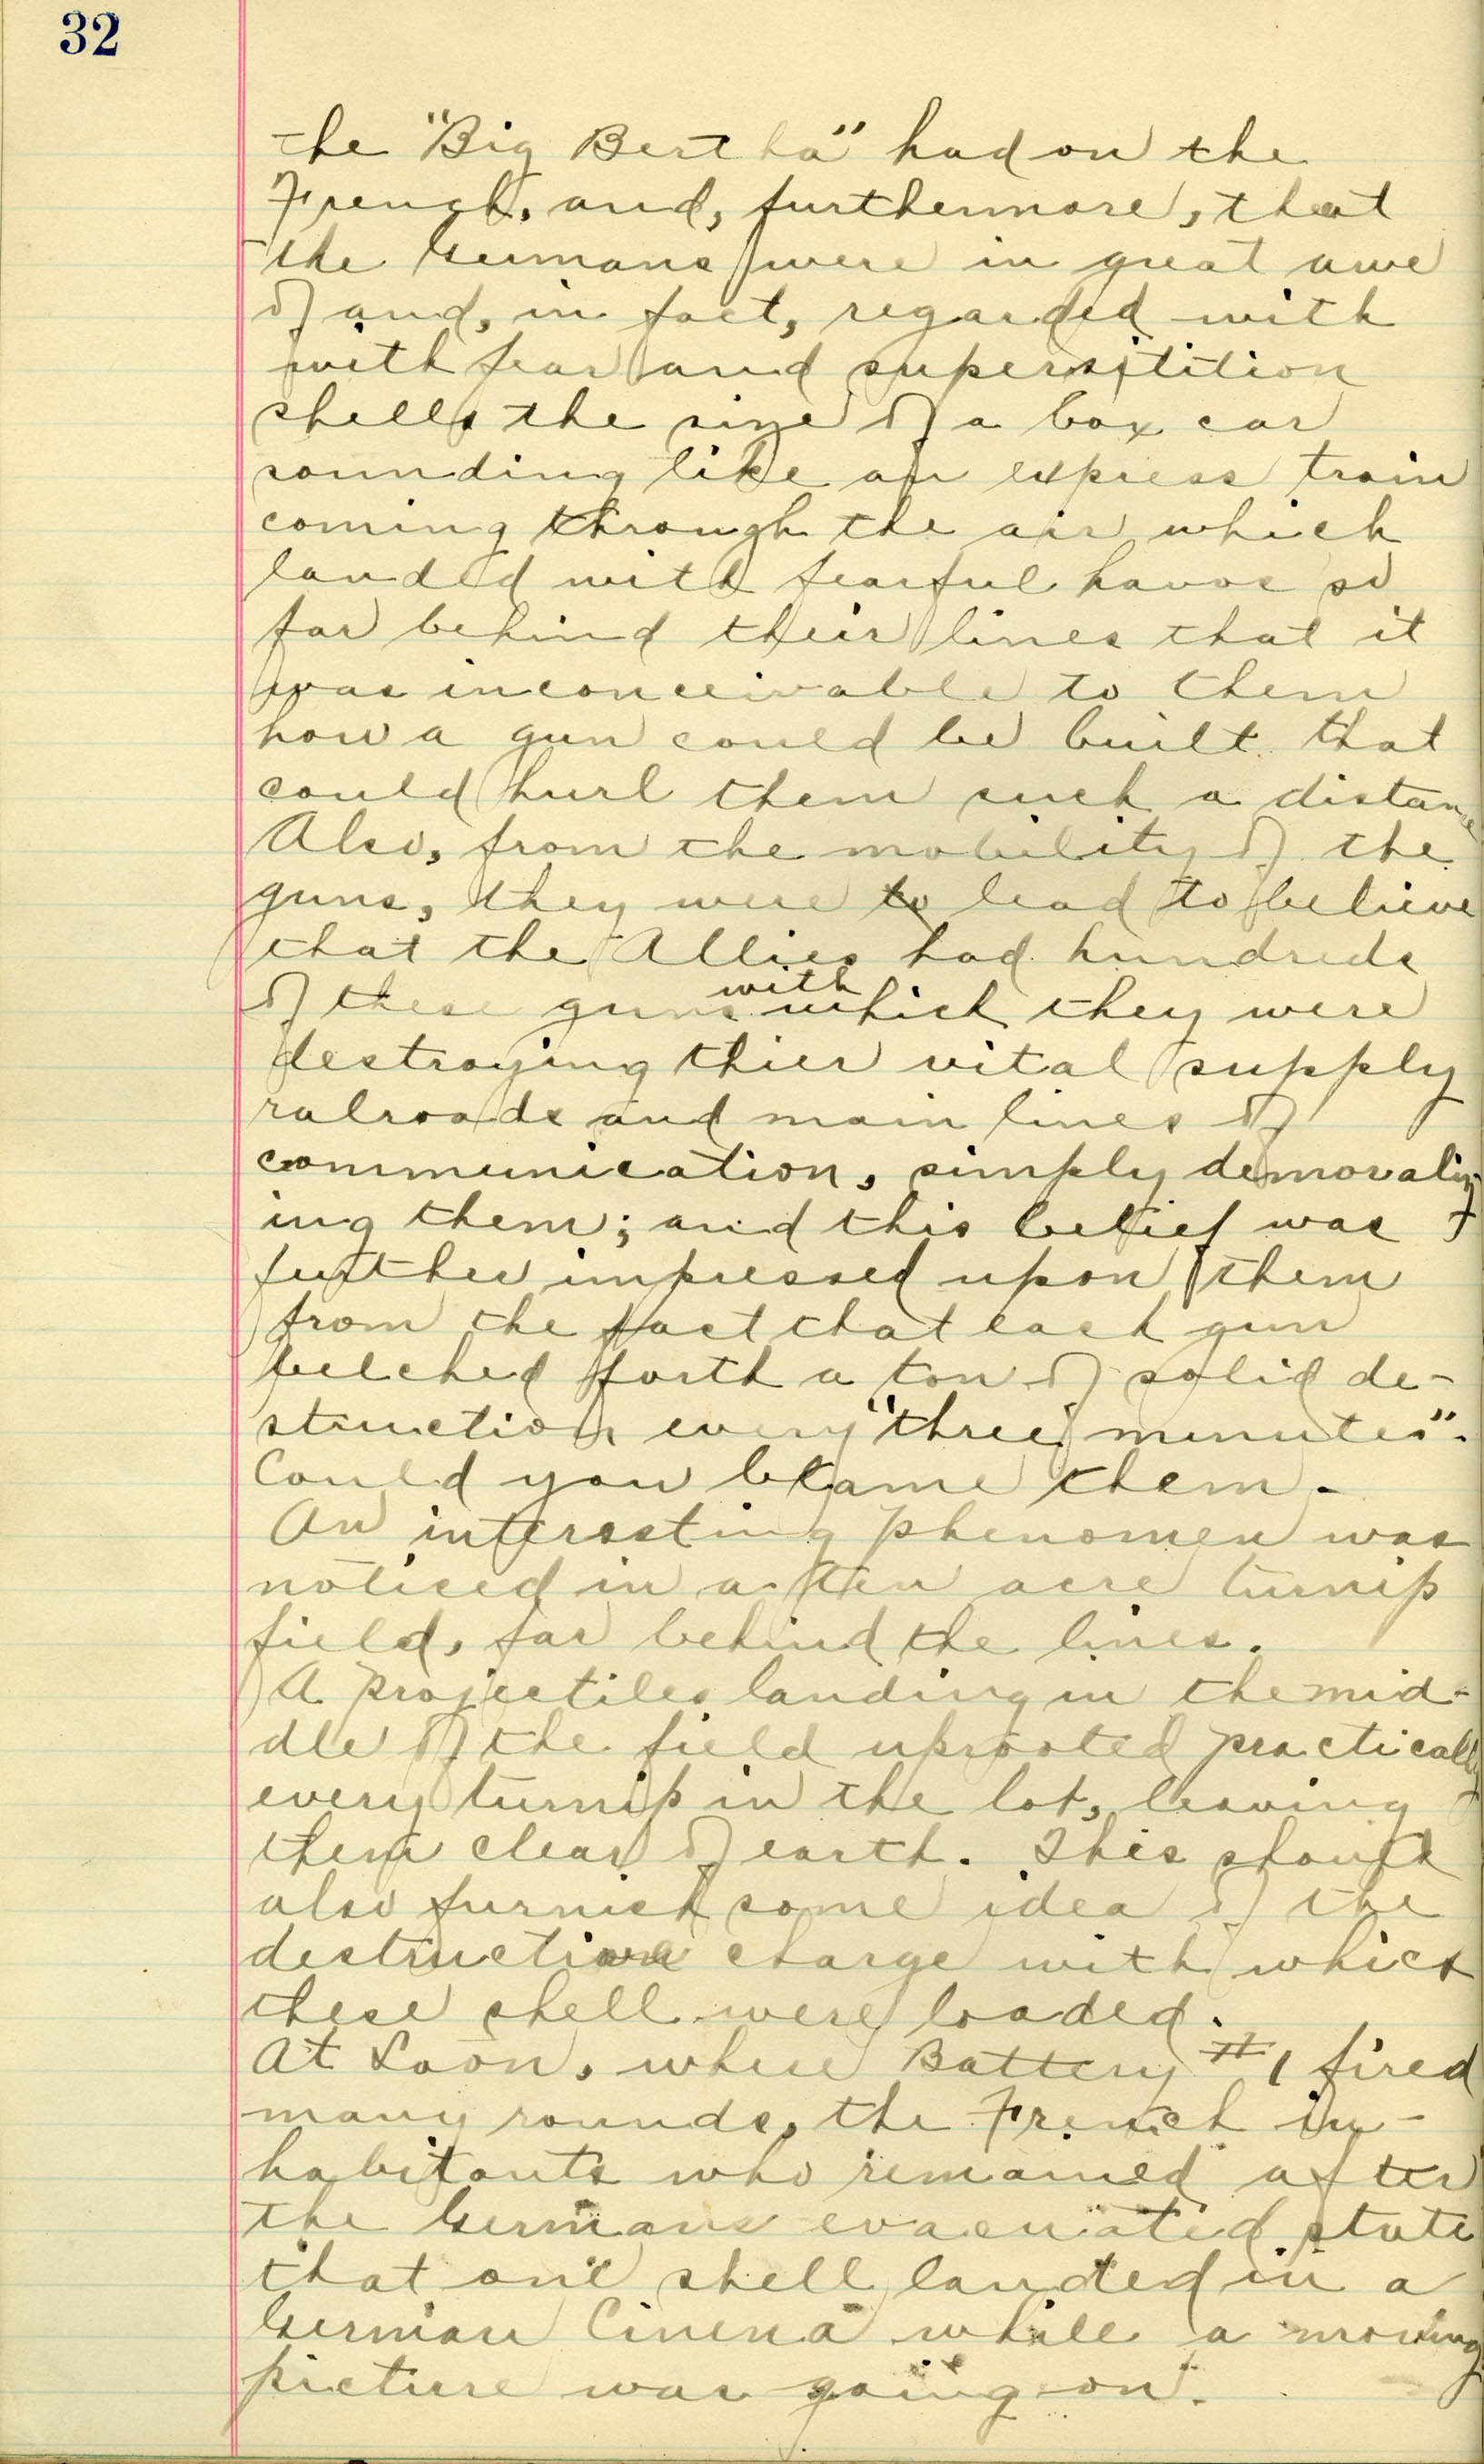 32
the "Big Bertha" had on the
French, and, furthermore, that
the Germans were in great awe
of and, in fact, regarded with
with fear and superstition
shells the size of a box car
sounding like an express train
coming through the air which
landed with fearful havoc so
far behind their lines that it
was inconceivable to them
how a gun could be built that
could hurl them such a distance
Also, from the mobility of the
guns, they were to lead to believe
that the Allies had hundreds
of these guns with which they were
destroying thier vital supply
ralroads and main lines of
communication, simply demoraliz-
ing them; and this belief was
further impressed upon them
from the fact that each gun
belched forth a ton of solid de-
struction every "three minutes".
Could you blame them.
An interesting phenomen was
noticed in a ten acre turnip
field, far behind the lines.
A projectiles landing in the mid-
dle of the field uprooted practically
every turnip in the lot, leaving
them clear of earth. This should
also furnish some idea of the
destructive charge with which
these shell were loaded.
At Laon, where Battery #1 fired
many rounds, the French in-
habitants who remained after
the Germans evacuated state
that one shell landed in a
German Cinena while a moving
picture was going on.